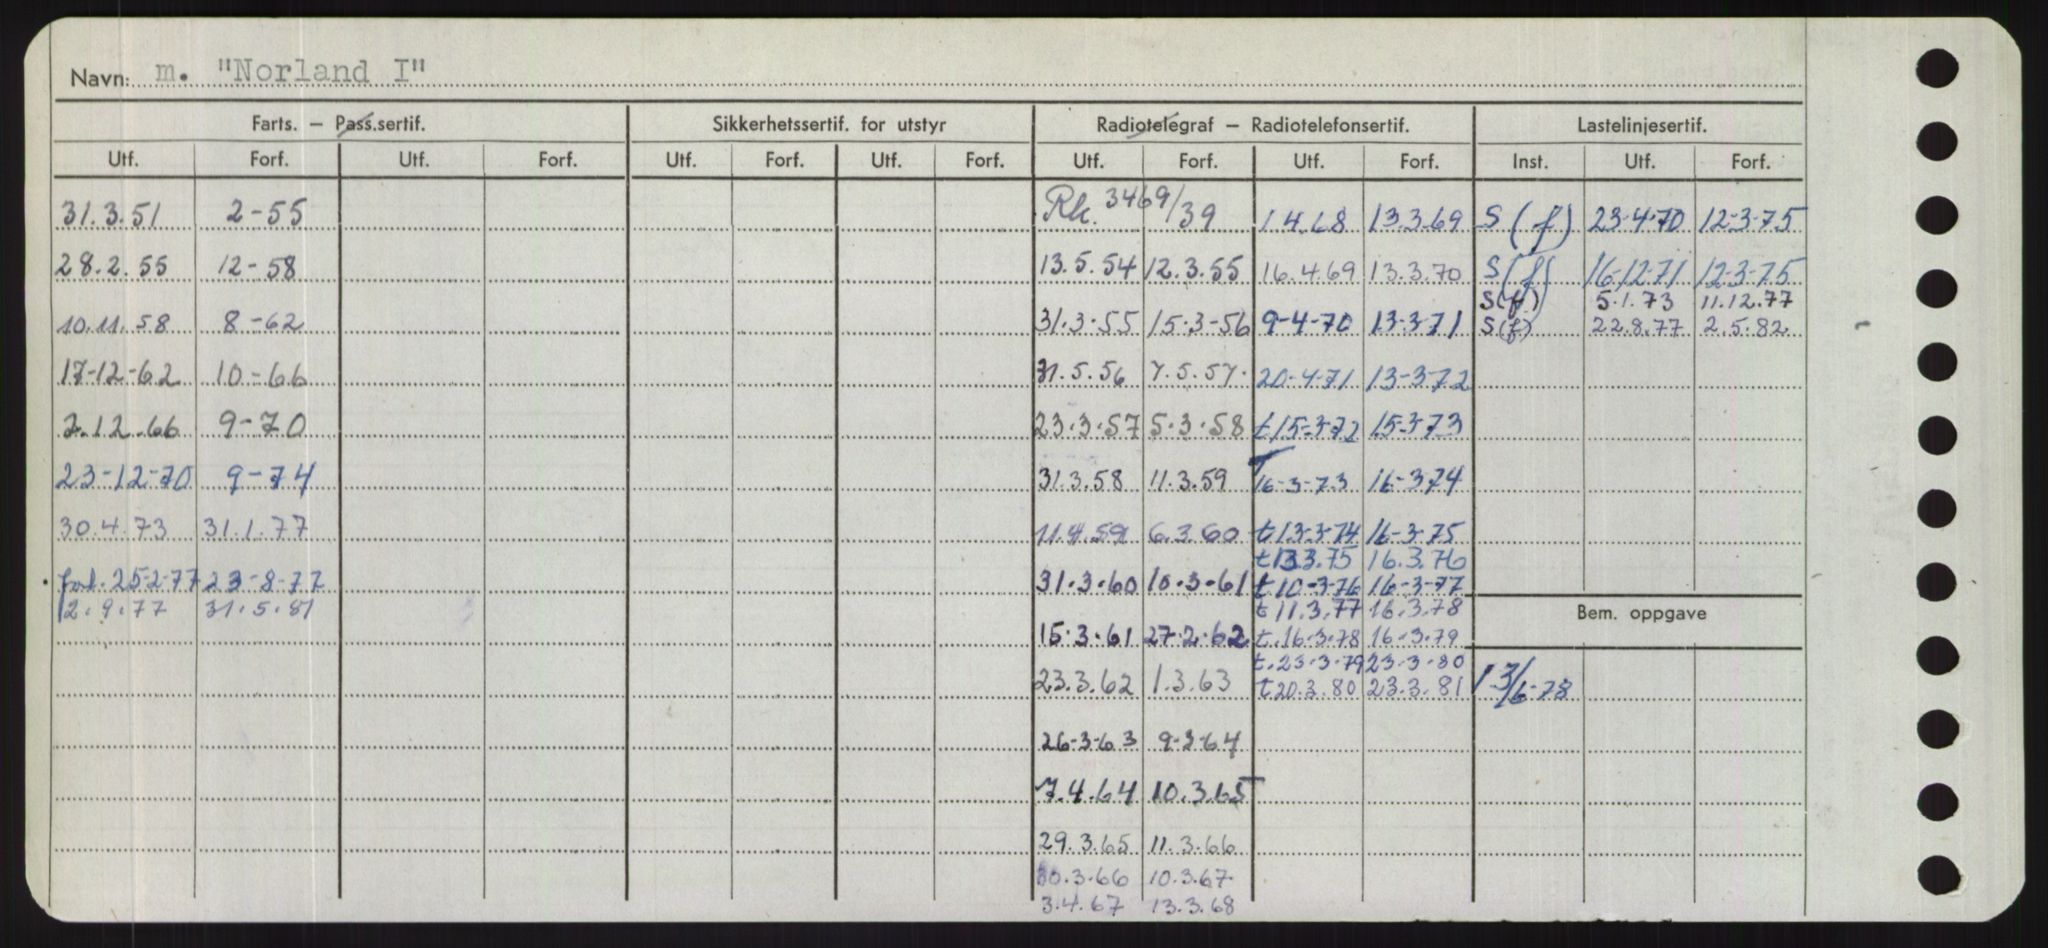 Navn: m. "Norland I"
Farts. — Pass.sertif. Sikkerhetssertif. for utstyr Radiotelegraf — Radiotelefonsertif. Lastelinjesertif.
Utf. Forf. Utf. Forf. Utf. Forf. Utf. Forf. Utf. Forf. Utf. Forf. Inst. Utf. Forf.
31.3.51 2-55 Rk. 3469/39 1.4.68 13.3.69 S (f) 23-4-70 12-3-75
28.2.55 12-58 13.5.54 12.3.55 16.4.69 13.3.70 S (f) 16-12-71 12-3-75
S(f) 5.1.73 11.12.77
10.11.58 8-62 31.3.55 15.3-56 9-4-70 13-3-71 S(f) 22.8.77 2.5.82
17-12-62 10-66 31.5.56 7.5.57. 20-4-71 13-3-72
2.12.66 9-70 23.3.57 5.3.58 t 15-3-72 15-3-73
23-12-70 9-74 31.3.58 11.3.59 T 16-3-73 16-3-74
30.4.73 31.1.77 11.4.59 6.3.60 t 13-3-74 16-3-75
t 13.3.75 16.3.76
forl. 25-2-77 23-8-77 31.3.60 10.3.61 t 10-3-76 16-3-77
2.9.77 31.5.81 t 11.3.77 16.3.78
15.3.61 27.2.62 t.16-3-78 16-3-79
t.23-3-79 23-3-80
23.3.62 1.3.63 t 20.3.80 23.3.81
Bem. oppgave
13/6-78
26-3-63 9-3-64
7.4.64 10.3.65
29.3.65 11.3.66
30.3.66 10.3.67.
3.4.67 13.3.68